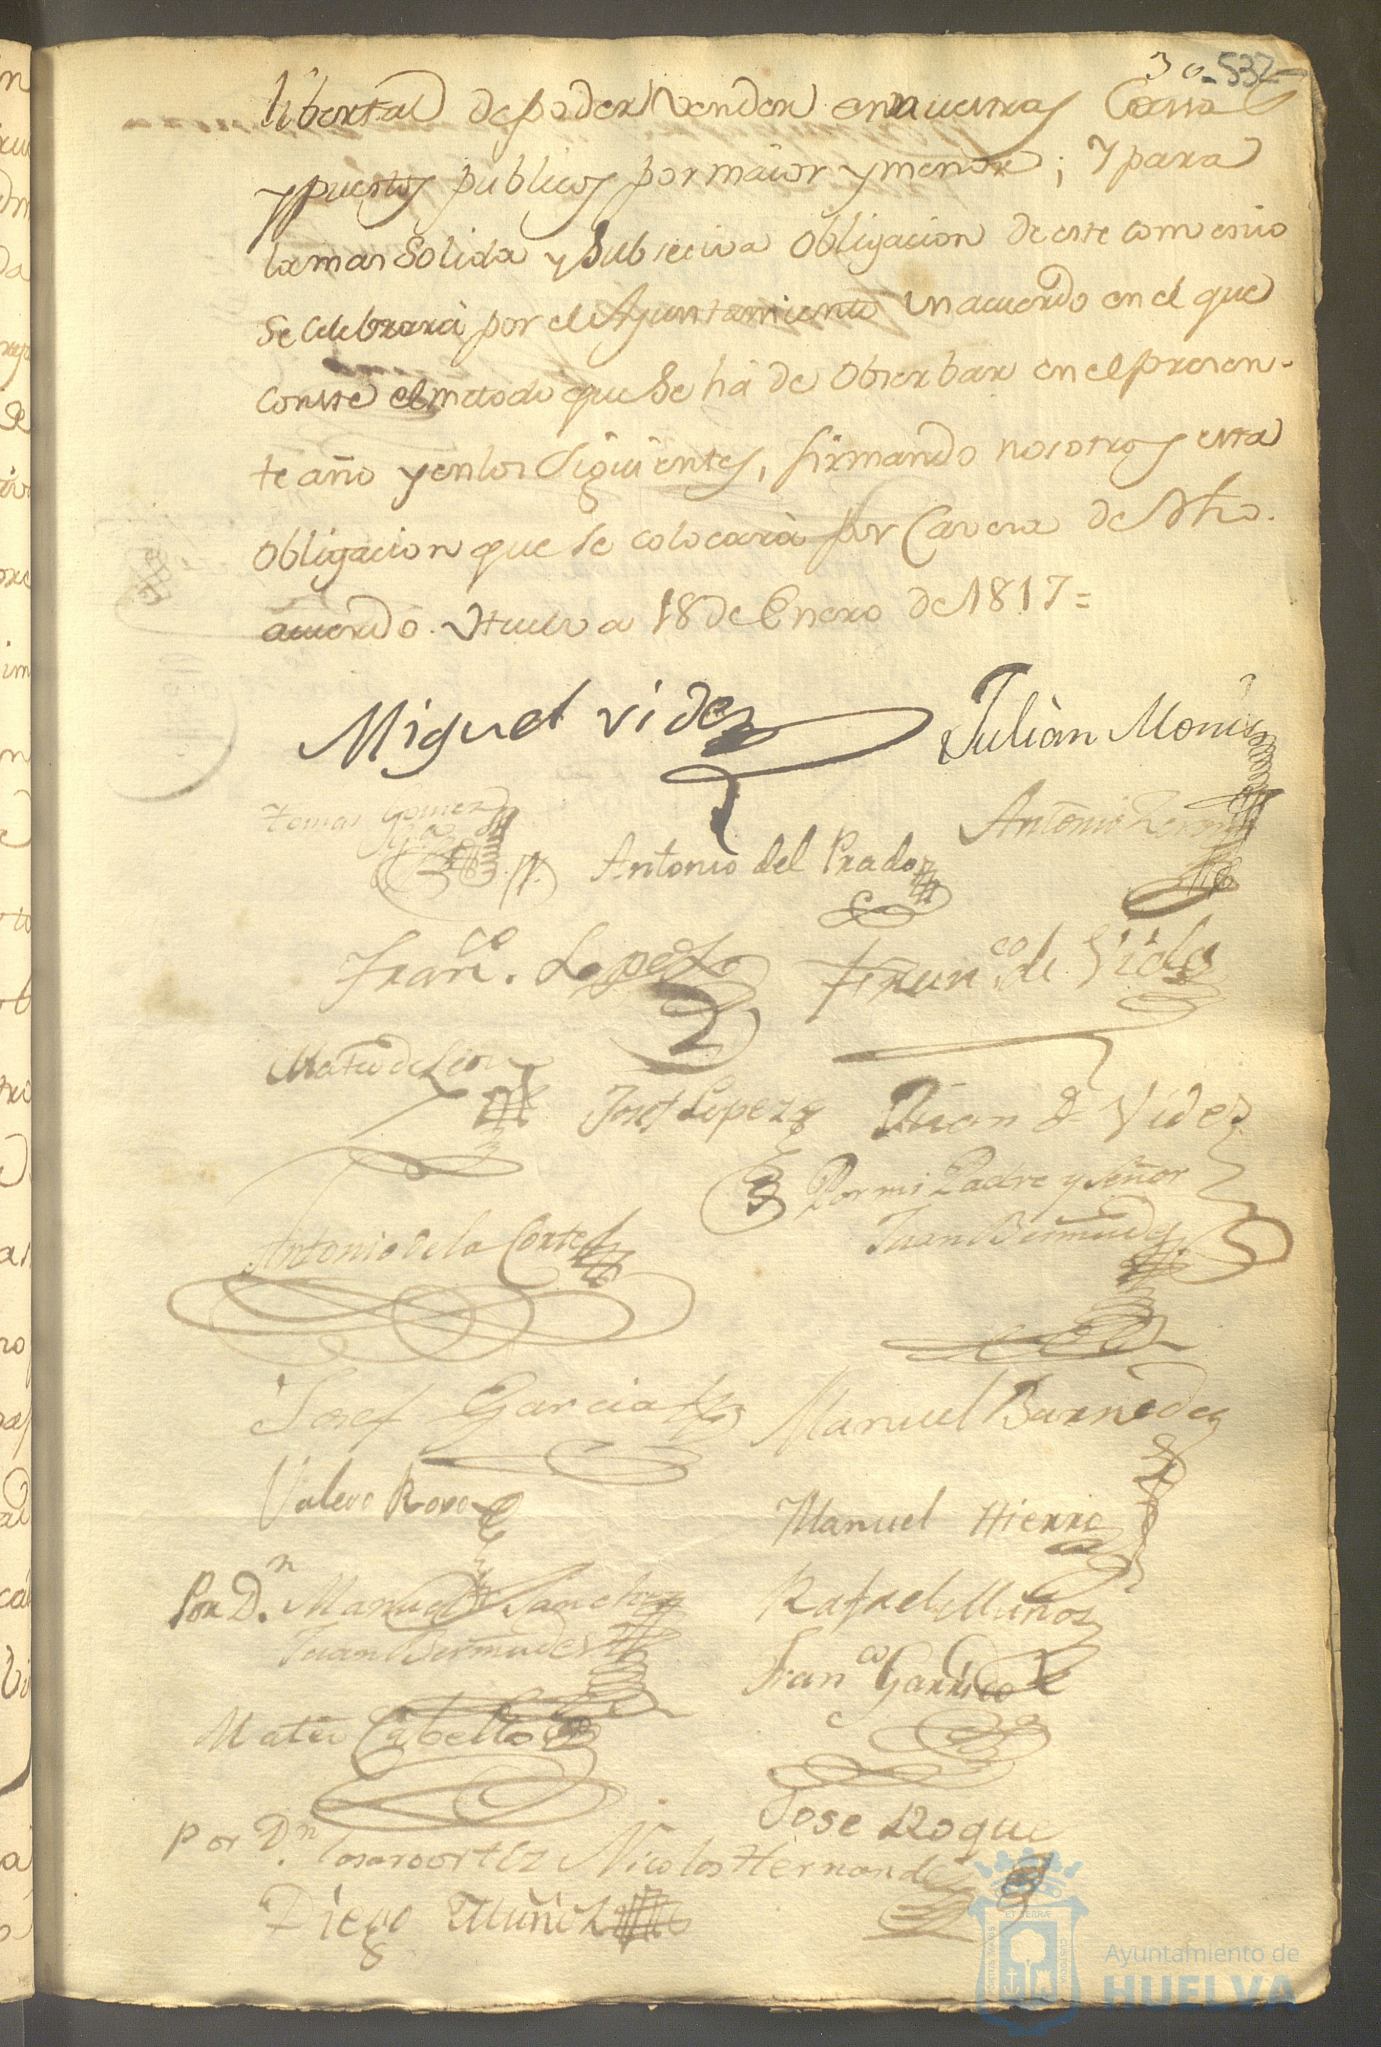 30-532
libertad de poder vender en nuestras Casas
y puestos publicos por maior y menor; y para
la mas Solida y Subseciva obligacion de este combenio
se celebrara por el Ayuntamiento un acuerdo en el que
conste el metodo que se ha de observar en el presen-
te año y en los Siguientes, firmando nosotros esta
obligacion que se colocara por Cavera de dho.
acuerdo. Huelva 18 de Enero de 1817=
Miguel Videz
Julian Moniz
Tomas Gomez
Antonio del Prado
Antonio
Franco. Lopez
Franco. de Vides
Mateo de Leon
Josef Lopez
Juan de Videz
Por mi Padre y Señor
Juan Bermudez
Antonio de la Corte
Josef Garcia
Manuel
Valero Roxo
Manuel Hierro
Por Dn. Manuel Sanchez
Juan Bermudez
Rafael Muñoz
Franco Garrido
Mateo Cabello
Jose Roque
Por Dn. Nicolas Hernandez
Diego Muñoz
Ayuntamiento de
HUELVA